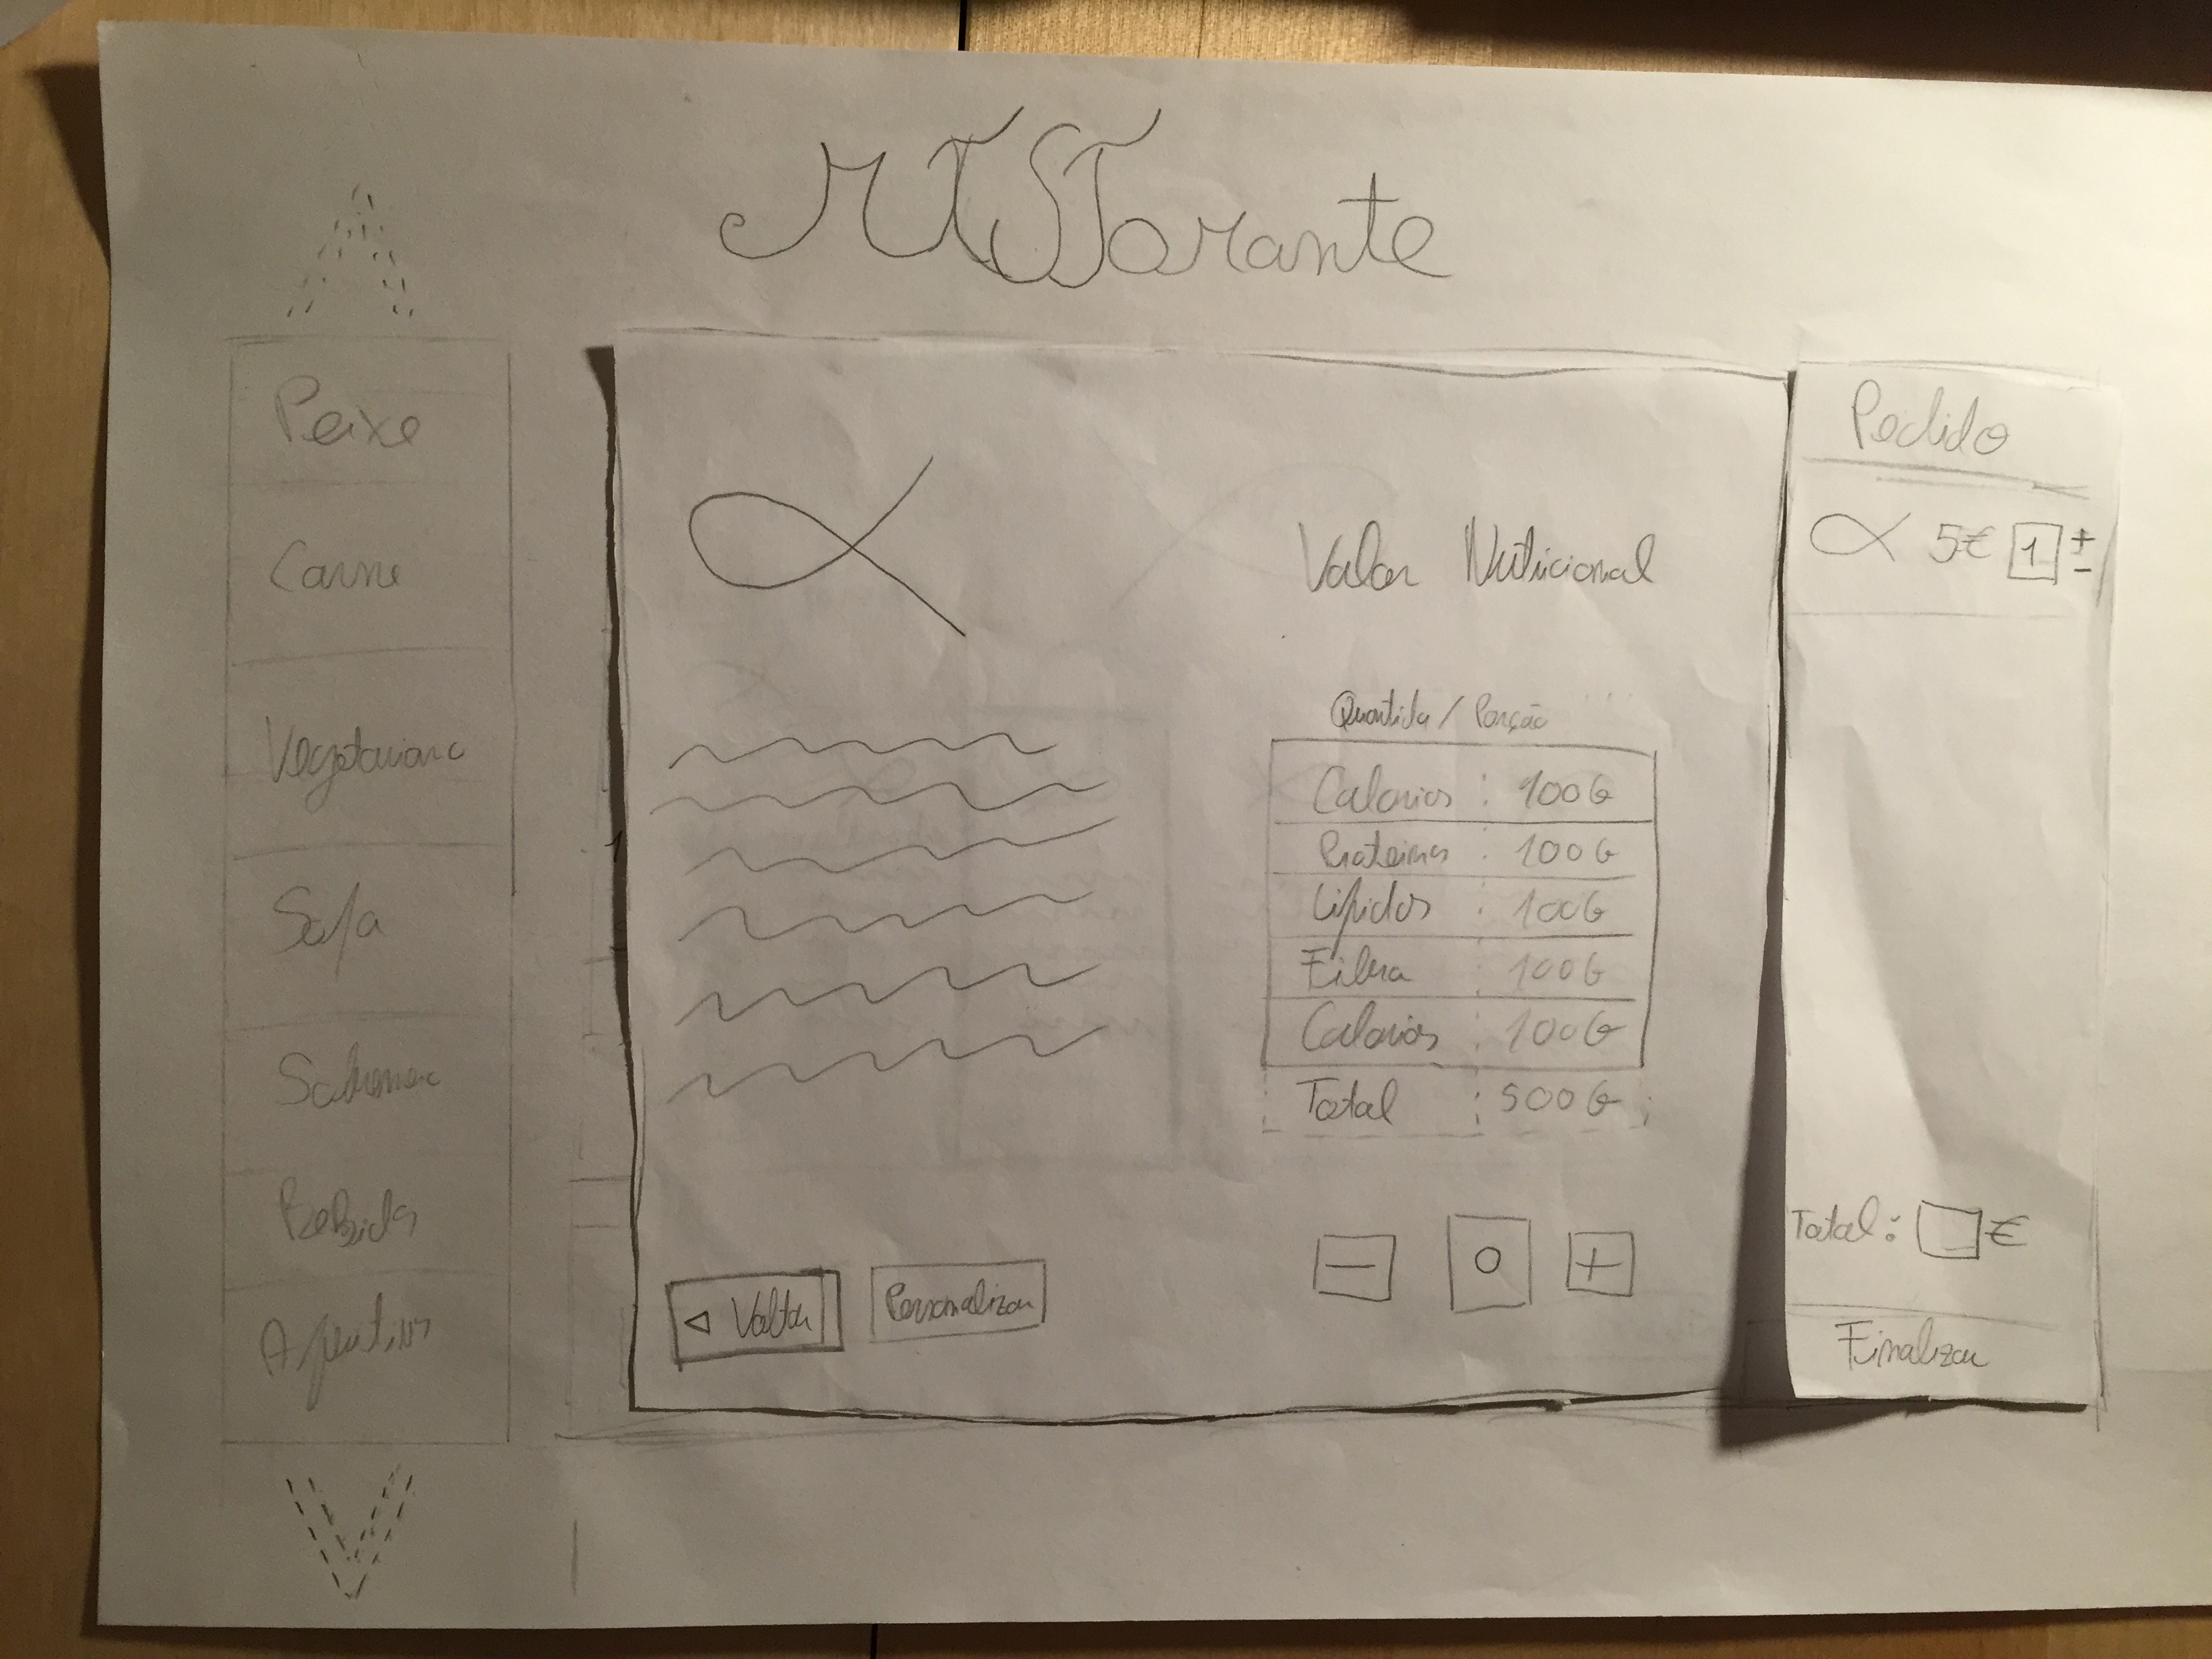 Peixe
Carne
Vegetariano
Sopa
Sobremesa
Bebida
Aperitivos
Valor Nutricional
Quantida / Porção
Calorias : 100G
Proteinas : 100G
Lípidos : 100G
Fibra : 100G
Calorias : 100G
Total : 500G
◁ Voltar
Personalizar
− 0 +
Pedido
5€ 1 + −
Total: €
Finalizar